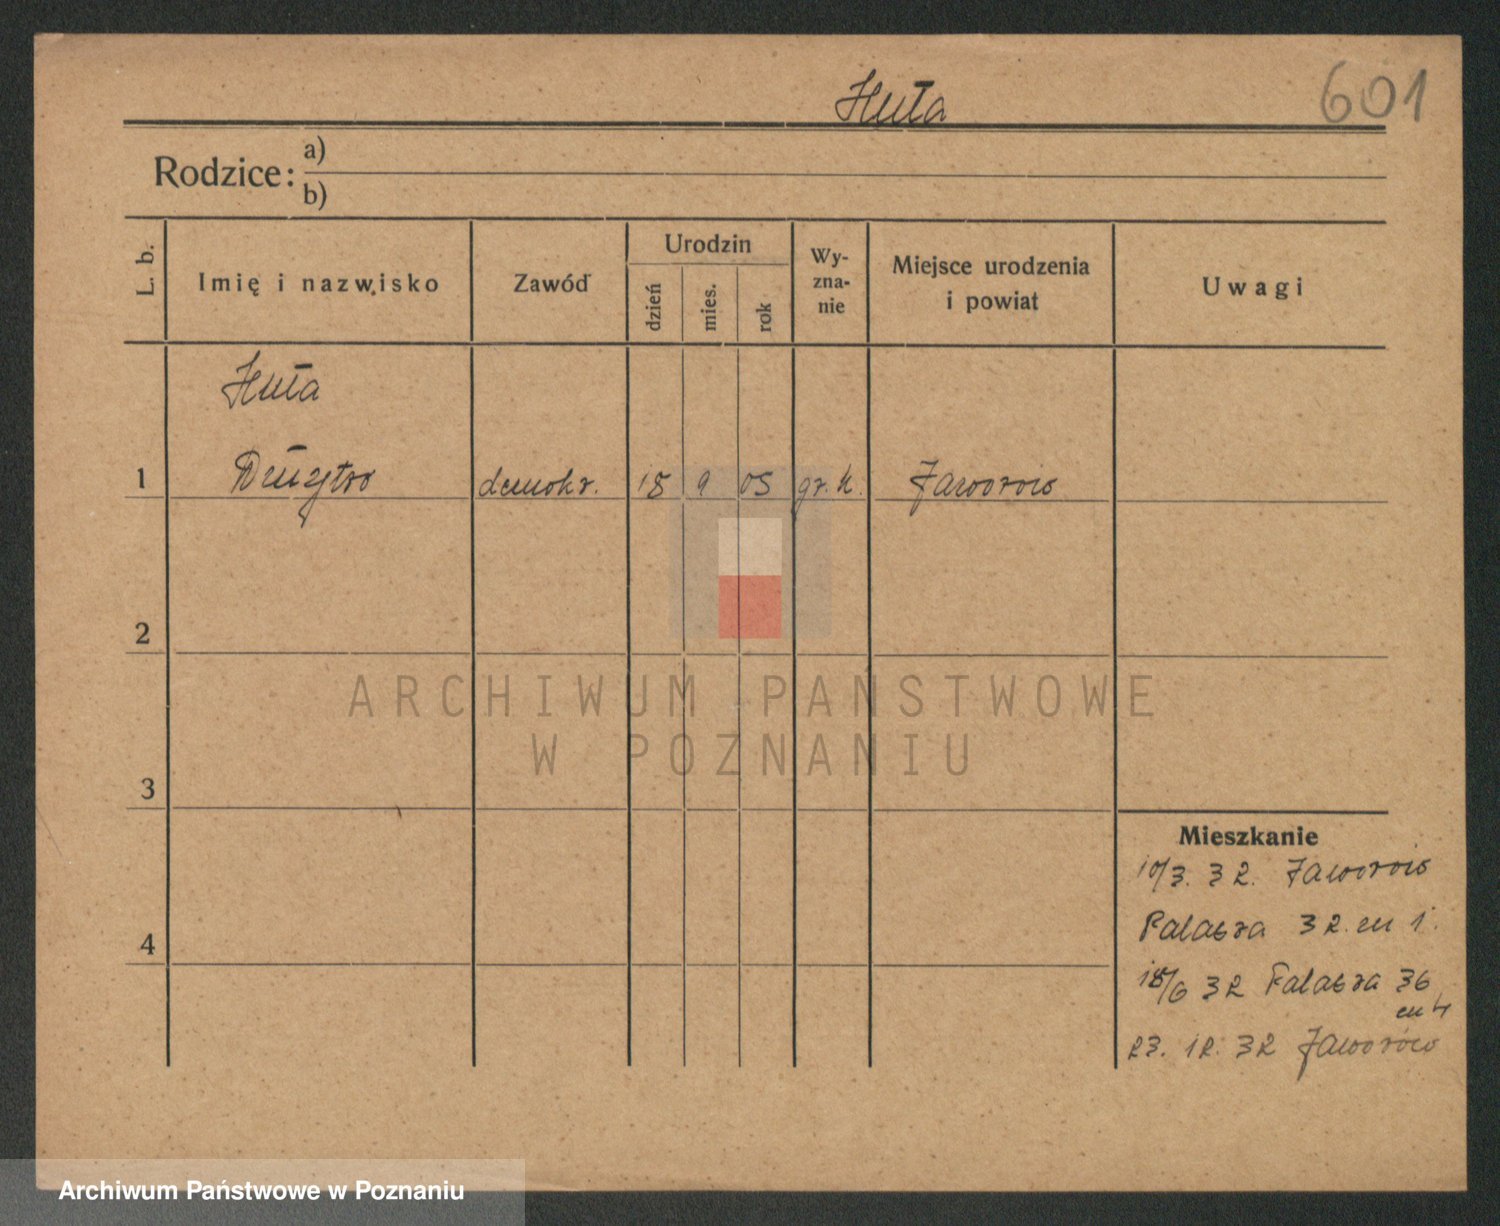 Huła
601
Rodzice:
a)
b)
L. b.
Imię i nazwisko
Zawód
Urodzin
dzień
mies.
rok
Wy-
zna-
nie
Miejsce urodzenia
i powiat
Uwagi
Huła
1
18 9 05 gr. k. Jaworów
2
ARCHIWUM PAŃSTWOWE
W POZNANIU
3
Mieszkanie
10/3. 32. Jaworów
32. m 1.
4
18/6 32 36
m 4
23. 12. 32 Jaworów
Archiwum Państwowe w Poznaniu